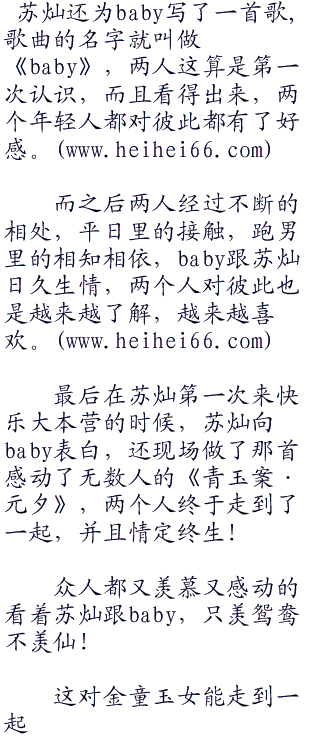 苏灿还为baby写了一首歌,
歌曲的名字就叫做
《baby》, 两人这算是第一
次认识, 而且看得出来, 两
个年轻人都对彼此都有了好
感。(www.heihei66.com)
而之后两人经过不断的
相处, 平日里的接触, 跑男
里的相知相依, baby跟苏灿
日久生情, 两个人对彼此也
是越来越了解, 越来越喜
欢。(www.heihei66.com)
最后在苏灿第一次来快
乐大本营的时候, 苏灿向
baby表白, 还现场做了那首
感动了无数人的《青玉案·
元夕》, 两个人终于走到了
一起, 并且情定终生!
众人都又羡慕又感动的
看着苏灿跟baby, 只羡鸳鸯
不羡仙!
这对金童玉女能走到一
起